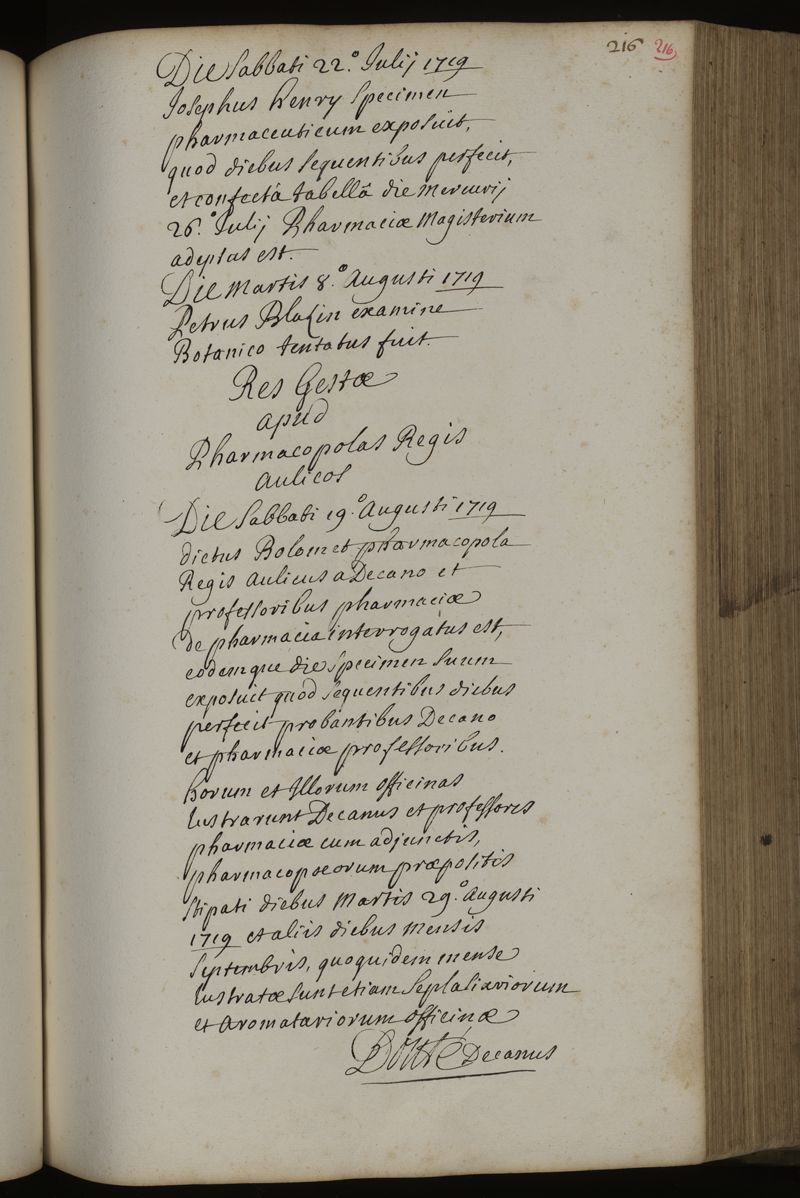 216 216
Die Sabbati 22.° Julij 1719
Josephus henry Specimen
pharmaceuticum exposuit,
quod diebus sequentibus perfecit,
et confectâ tabellâ die mercurij
26.° Julij Pharmaciæ Magisterium
adeptus est.
Die Martis 8.° Augusti 1719
Petrus Blassin examine
Botanico tentatus fuit.
Res Gestæ
apud
Pharmacopolas Regis
aulicos
Die Sabbati 19.° Augusti 1719
dictus Bolomet pharmacopola
Regis aulicus a Decano et
professoribus pharmaciæ
de pharmacia interrogatus est,
eodemque die specimen suum
exposuit quod sequentibus diebus
perfecit probantibus Decano
et pharmaciæ professoribus.
horum et Illorum officinas
lustrarunt Decanus et professores
pharmaciæ cum adjunctis,
pharmacopoeorum præpositis
stipati diebus Martis 29.° Augusti
1719 et aliis diebus mensis
Septembris, quoquidem mense
lustratæ sunt etiam Seplasiariorum
et aromatariorum officinæ
Decanus